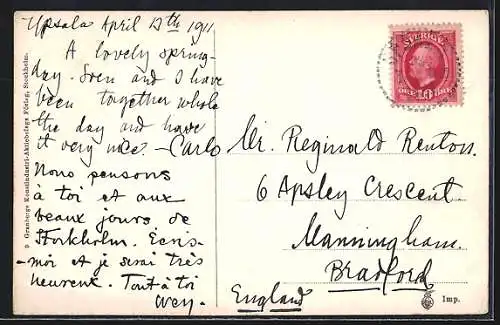 Upsala April 17th 1911
A lovely spring-
day. Sven and I have
been together whole
the day and have
it very nice. - Carlo
Nous pensons
à toi et aux
beaux jours de
Stockholm. Écris-
-moi et je serai très
heureux. Tout à toi
Mr. Reginald Renton.
6 Apsley Crescent
Manningham.
Bradford
England
SVERIGE
10
Granbergs Konstindustri-Aktiebolags Förlag, Stockholm.
Imp.